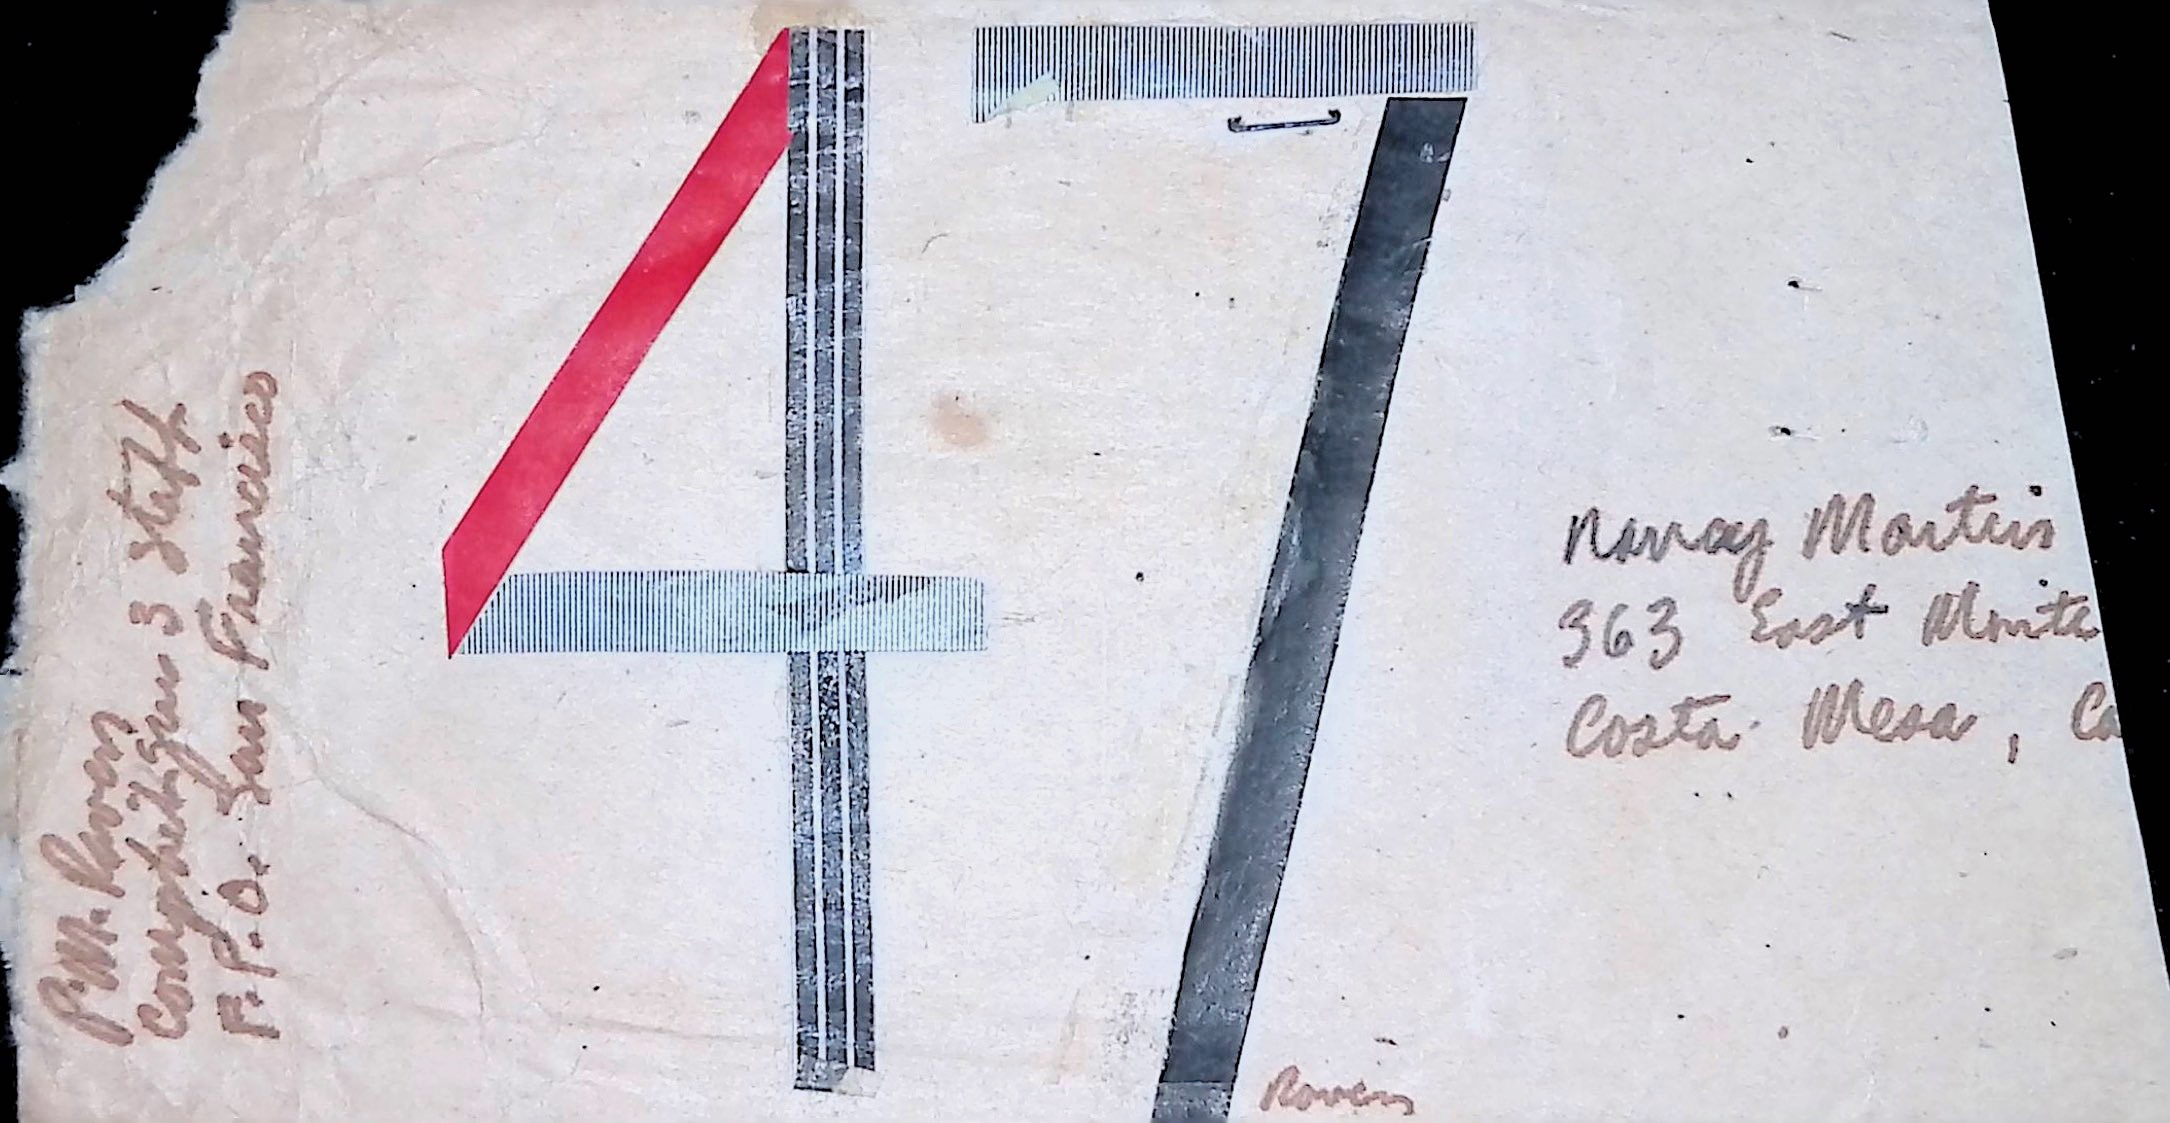 P.M. Raven
Comphibtgru 3 staff
F.P.O. San Francisco
47
Nancy Martin
363 East Monte
Costa Mesa, Ca
Raven